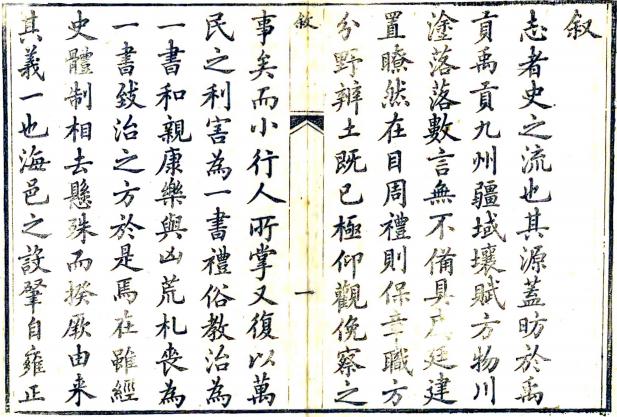 叙
志者史之流也其源蓋昉於禹
貢禹貢九州疆域壤賦方物川
塗落落數言無不備具 廷建
置瞭然在目周禮則保章職方
分野辨土既已極仰觀俛察之
叙
一
事矣而小行人所掌又復以萬
民之利害為一書禮俗教治為
一書和親康樂與凶荒札喪為
一書致治之方於是焉在雖經
史體制相去懸殊而揆厥由来
其義一也海邑之設肇自雍正